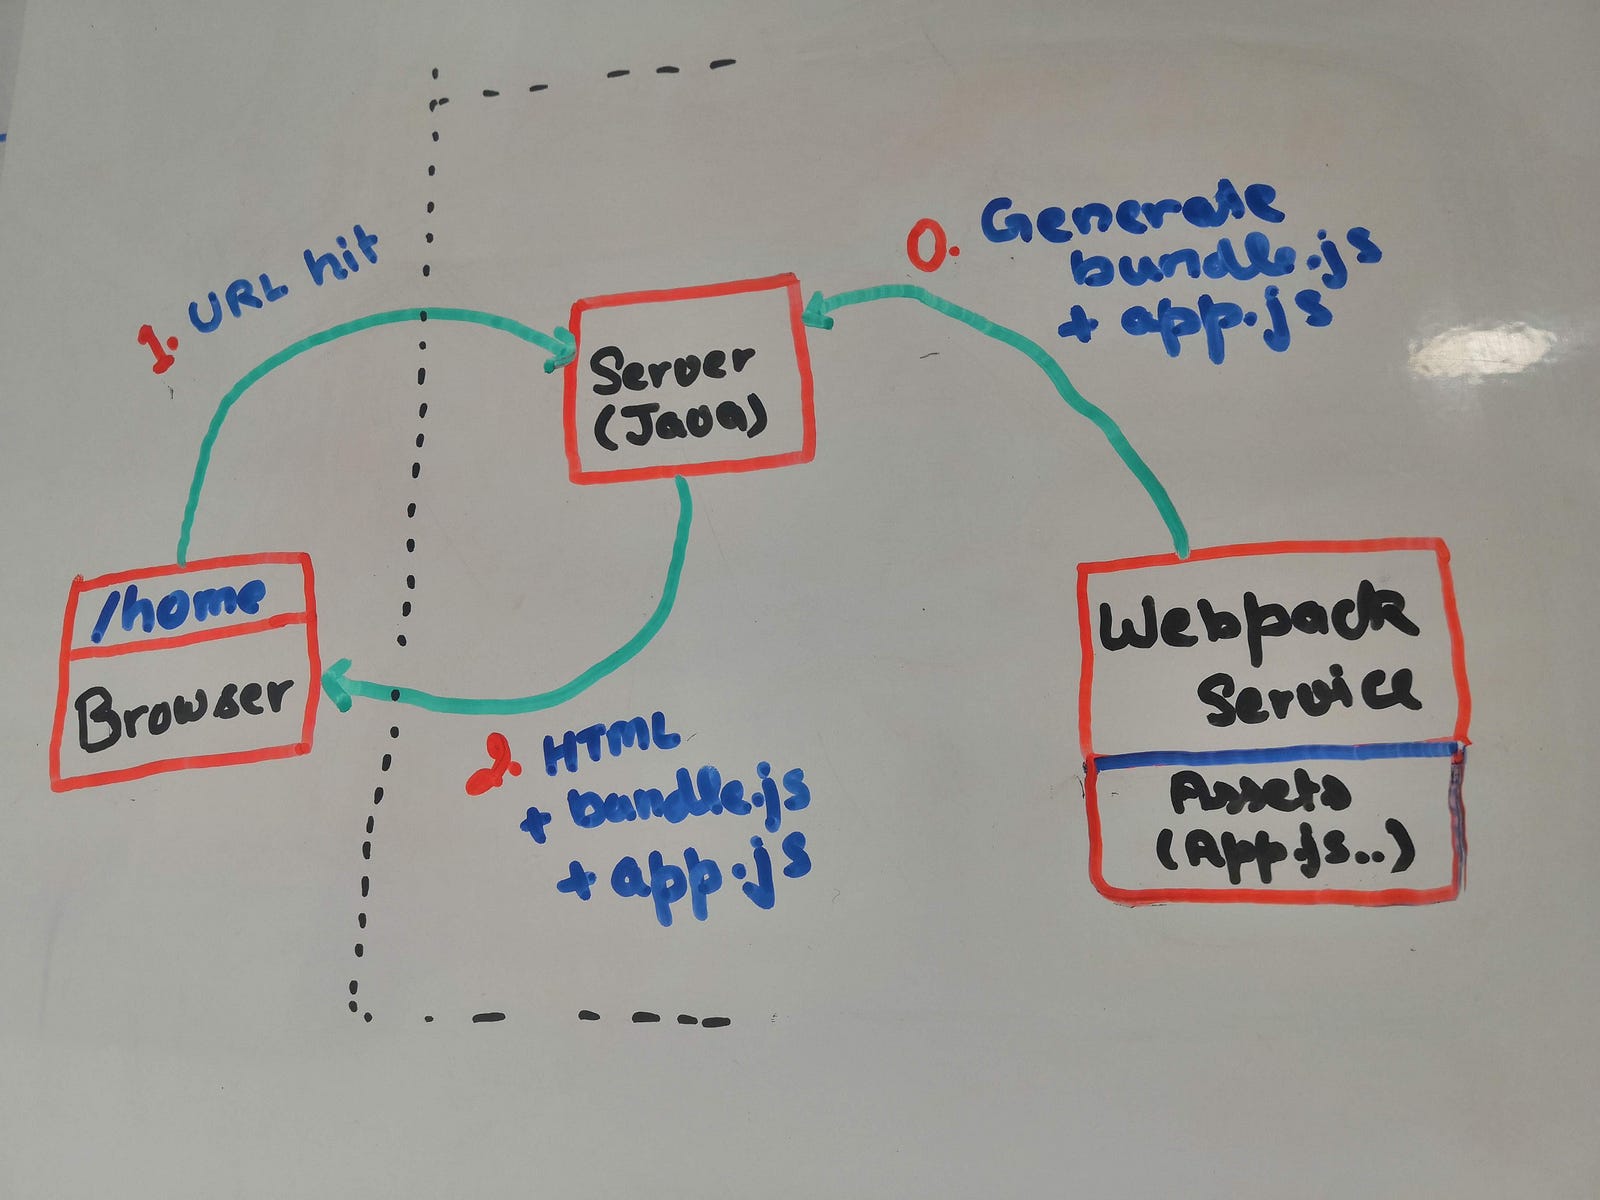 1. URL hit
0. Generate
bundle.js
+ app.js
Server
(Java)
/home
Browser
2. HTML
+ bundle.js
+ app.js
Webpack
Service
Assets
(App.js..)